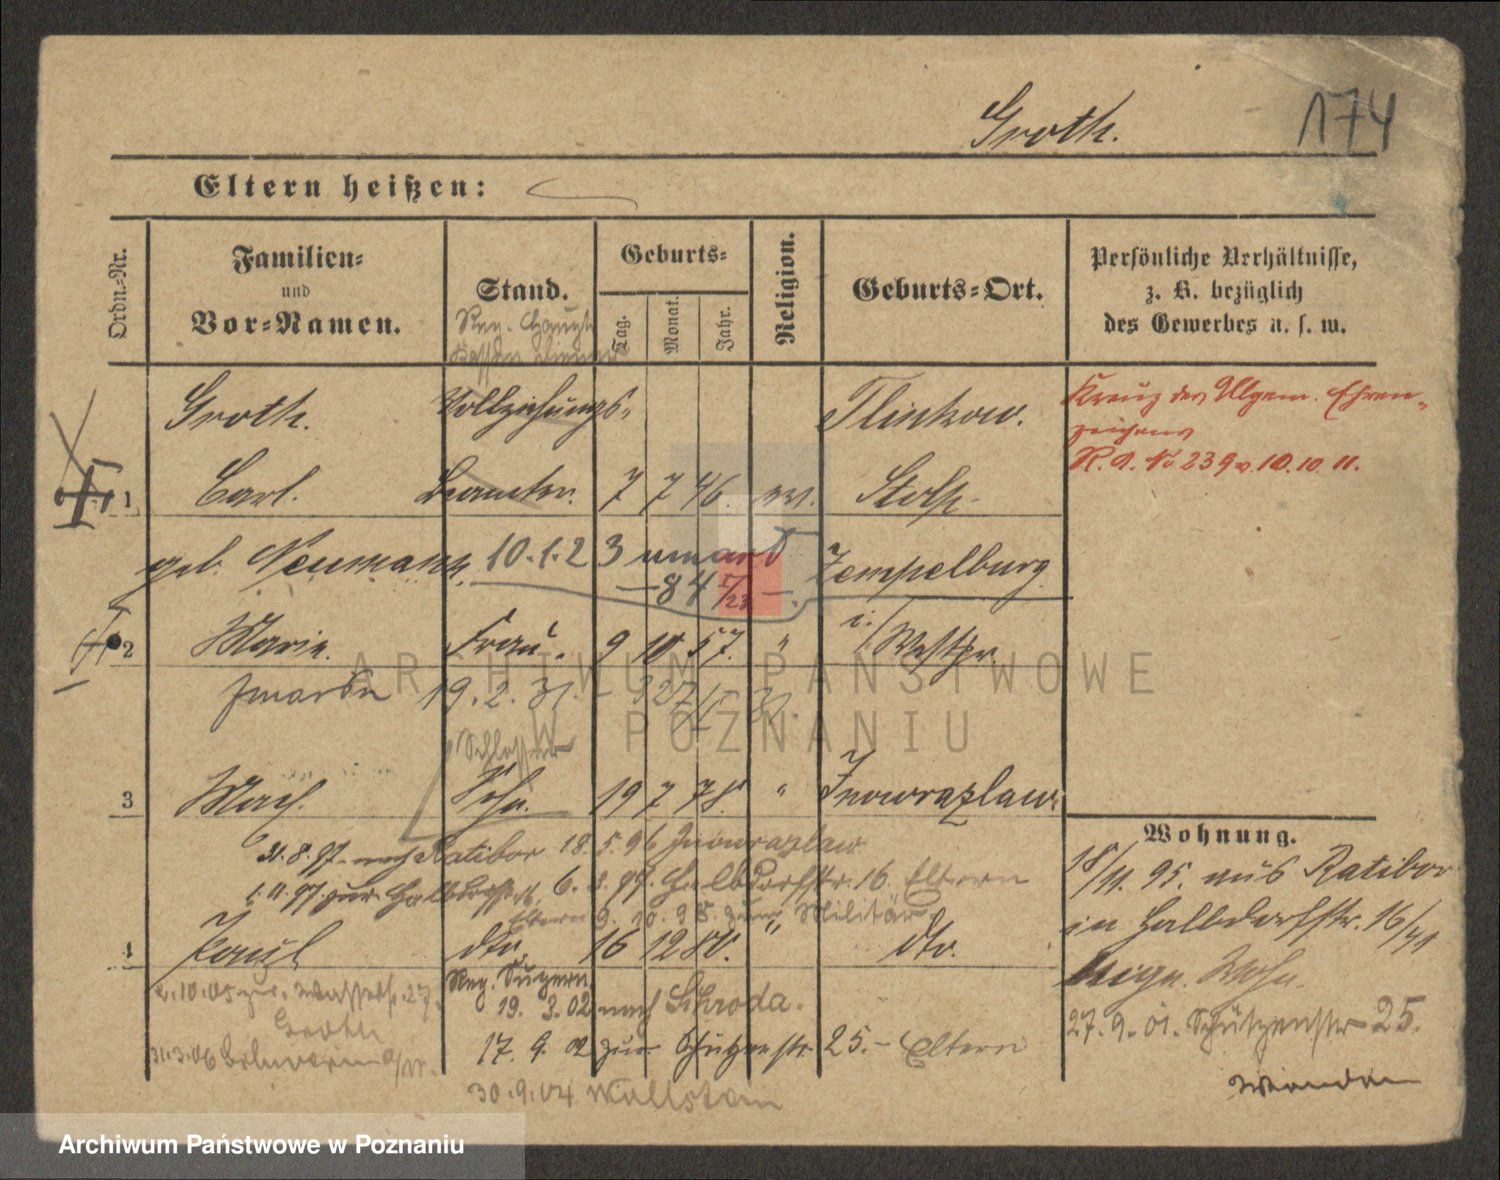 Groth. 174
Eltern heißen:
Ordn.-Nr.
Familien-
und
Vor-Namen.
Stand.
Geburts-
Tag.
Monat.
Jahr.
Religion.
Geburts-Ort.
Persönliche Verhältnisse,
z. B. bezüglich
des Gewerbes u. s. w.
Reg. Haupt
Kassen Diener
Groth. Vollziehungs- Flinkow.
Kreuz des Allgem. Ehren-
zeichens
R.A. No 239 v. 10.10.11.
1 Carl. Beamter. 7 7 46. ev. Stolp.
geb. Neumann 10.1.23 Zempelburg
2 Marie. Frau. 9 10 57. " i./Westpr.
19.2.31.
ARCHIWUM PAŃSTWOWE
W POZNANIU
Schlosser
3 Max. Sohn. 19 7 78. " Inowrazlaw.
Wohnung.
31.8.97 nach Ratibor 18.5.96 Inowrazlaw
18/11.95. aus Ratibor
1.11.97 zur Halbdorfstr. 6.8.97. Halbdorfstr. 16 Eltern
in Halbdorfstr. 16/
Eltern 9.10.98. zum Militär
4 Paul dto. 16 12 80. " dto.
2.10.05 zur. 27. Reg. 19.3.02 nach Schroda.
Groth
27.9.01. Schützenstr 25.
31.3.06 Schwerin a/W. 17.9.02 zur Schützenstr 25.- Eltern
30.9.04 Wollstein
Archiwum Państwowe w Poznaniu